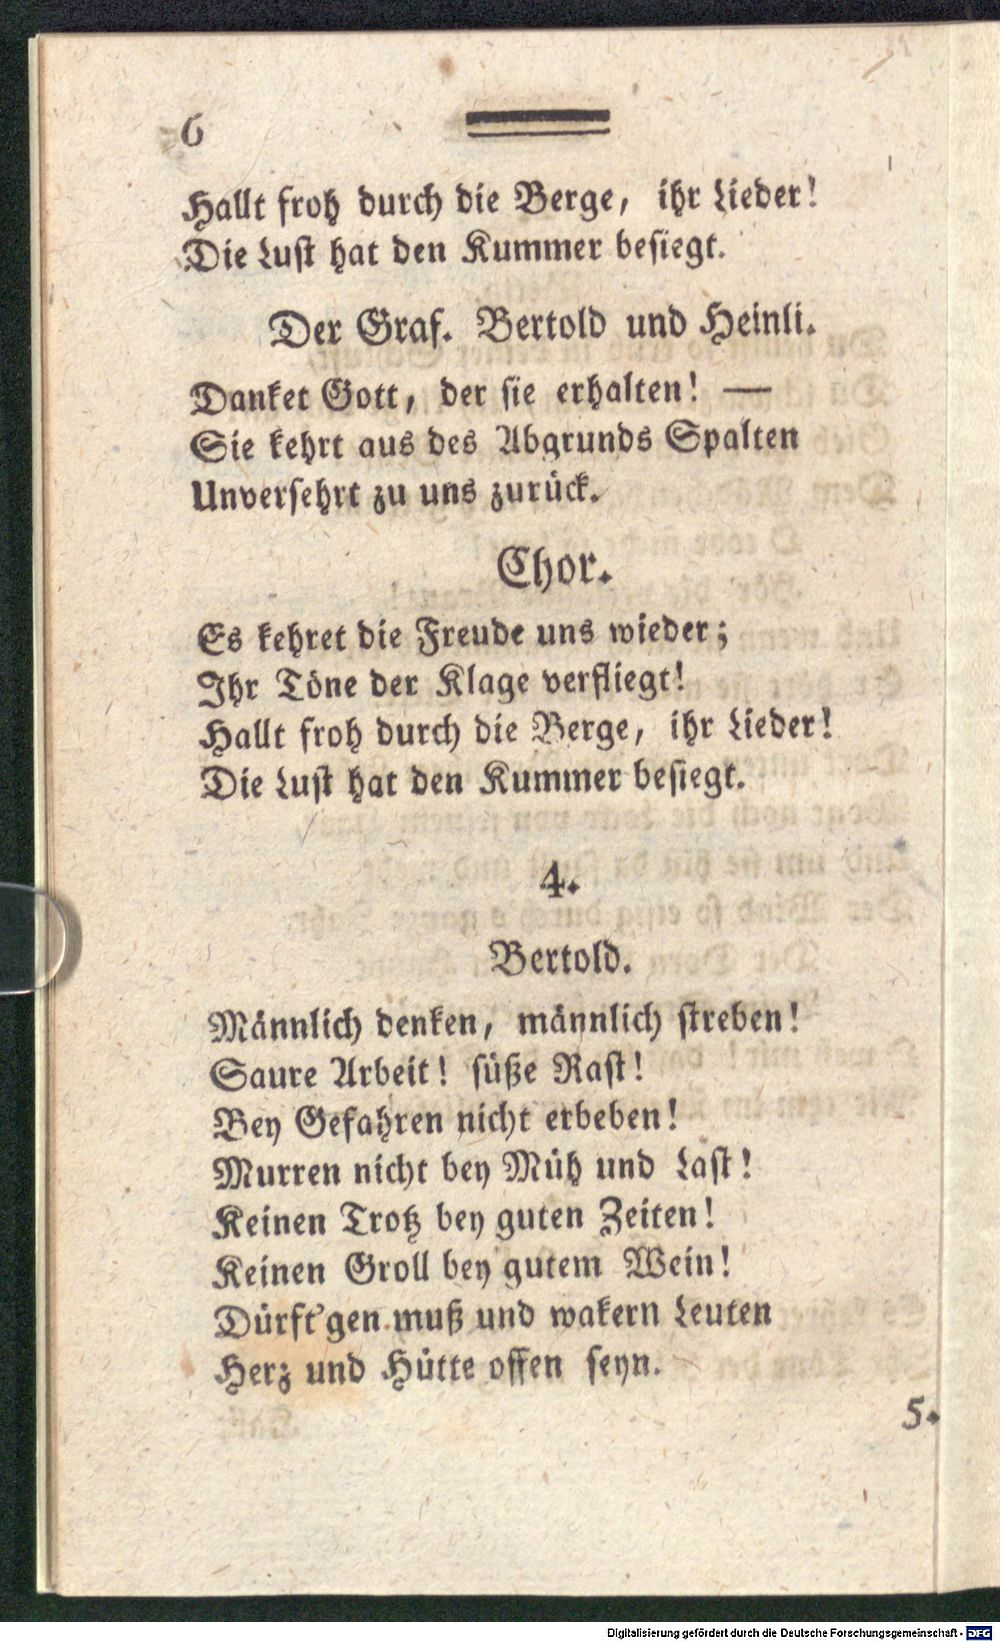 6
Hallt froh durch die Berge, ihr Lieder!
Die Lust hat den Kummer besiegt.
Der Graf. Bertold und Heinli.
Danket Gott, der sie erhalten! —
Sie kehrt aus des Abgrunds Spalten
Unversehrt zu uns zurück.
Chor.
Es kehret die Freude uns wieder;
Ihr Töne der Klage verfliegt!
Hallt froh durch die Berge, ihr Lieder!
Die Lust hat den Kummer besiegt.
4.
Bertold.
Männlich denken, männlich streben!
Saure Arbeit! süße Rast!
Bey Gefahren nicht erbeben!
Murren nicht bey Müh und Last!
Keinen Trotz bey guten Zeiten!
Keinen Groll bey gutem Wein!
Dürft'gen muß und wakern Leuten
Herz und Hütte offen seyn.
5.
Digitalisierung gefördert durch die Deutsche Forschungsgemeinschaft - DFG